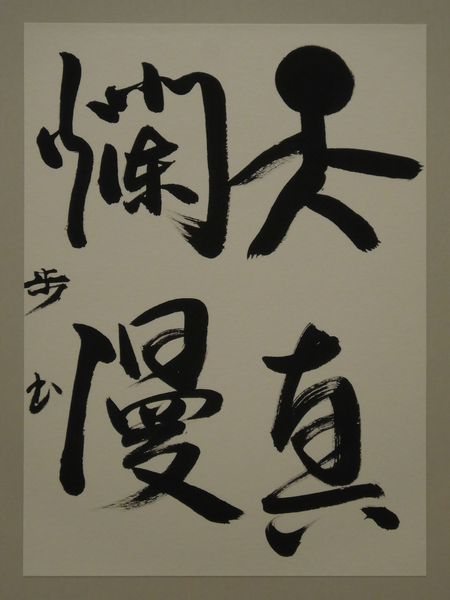 天真
爛漫
歩書